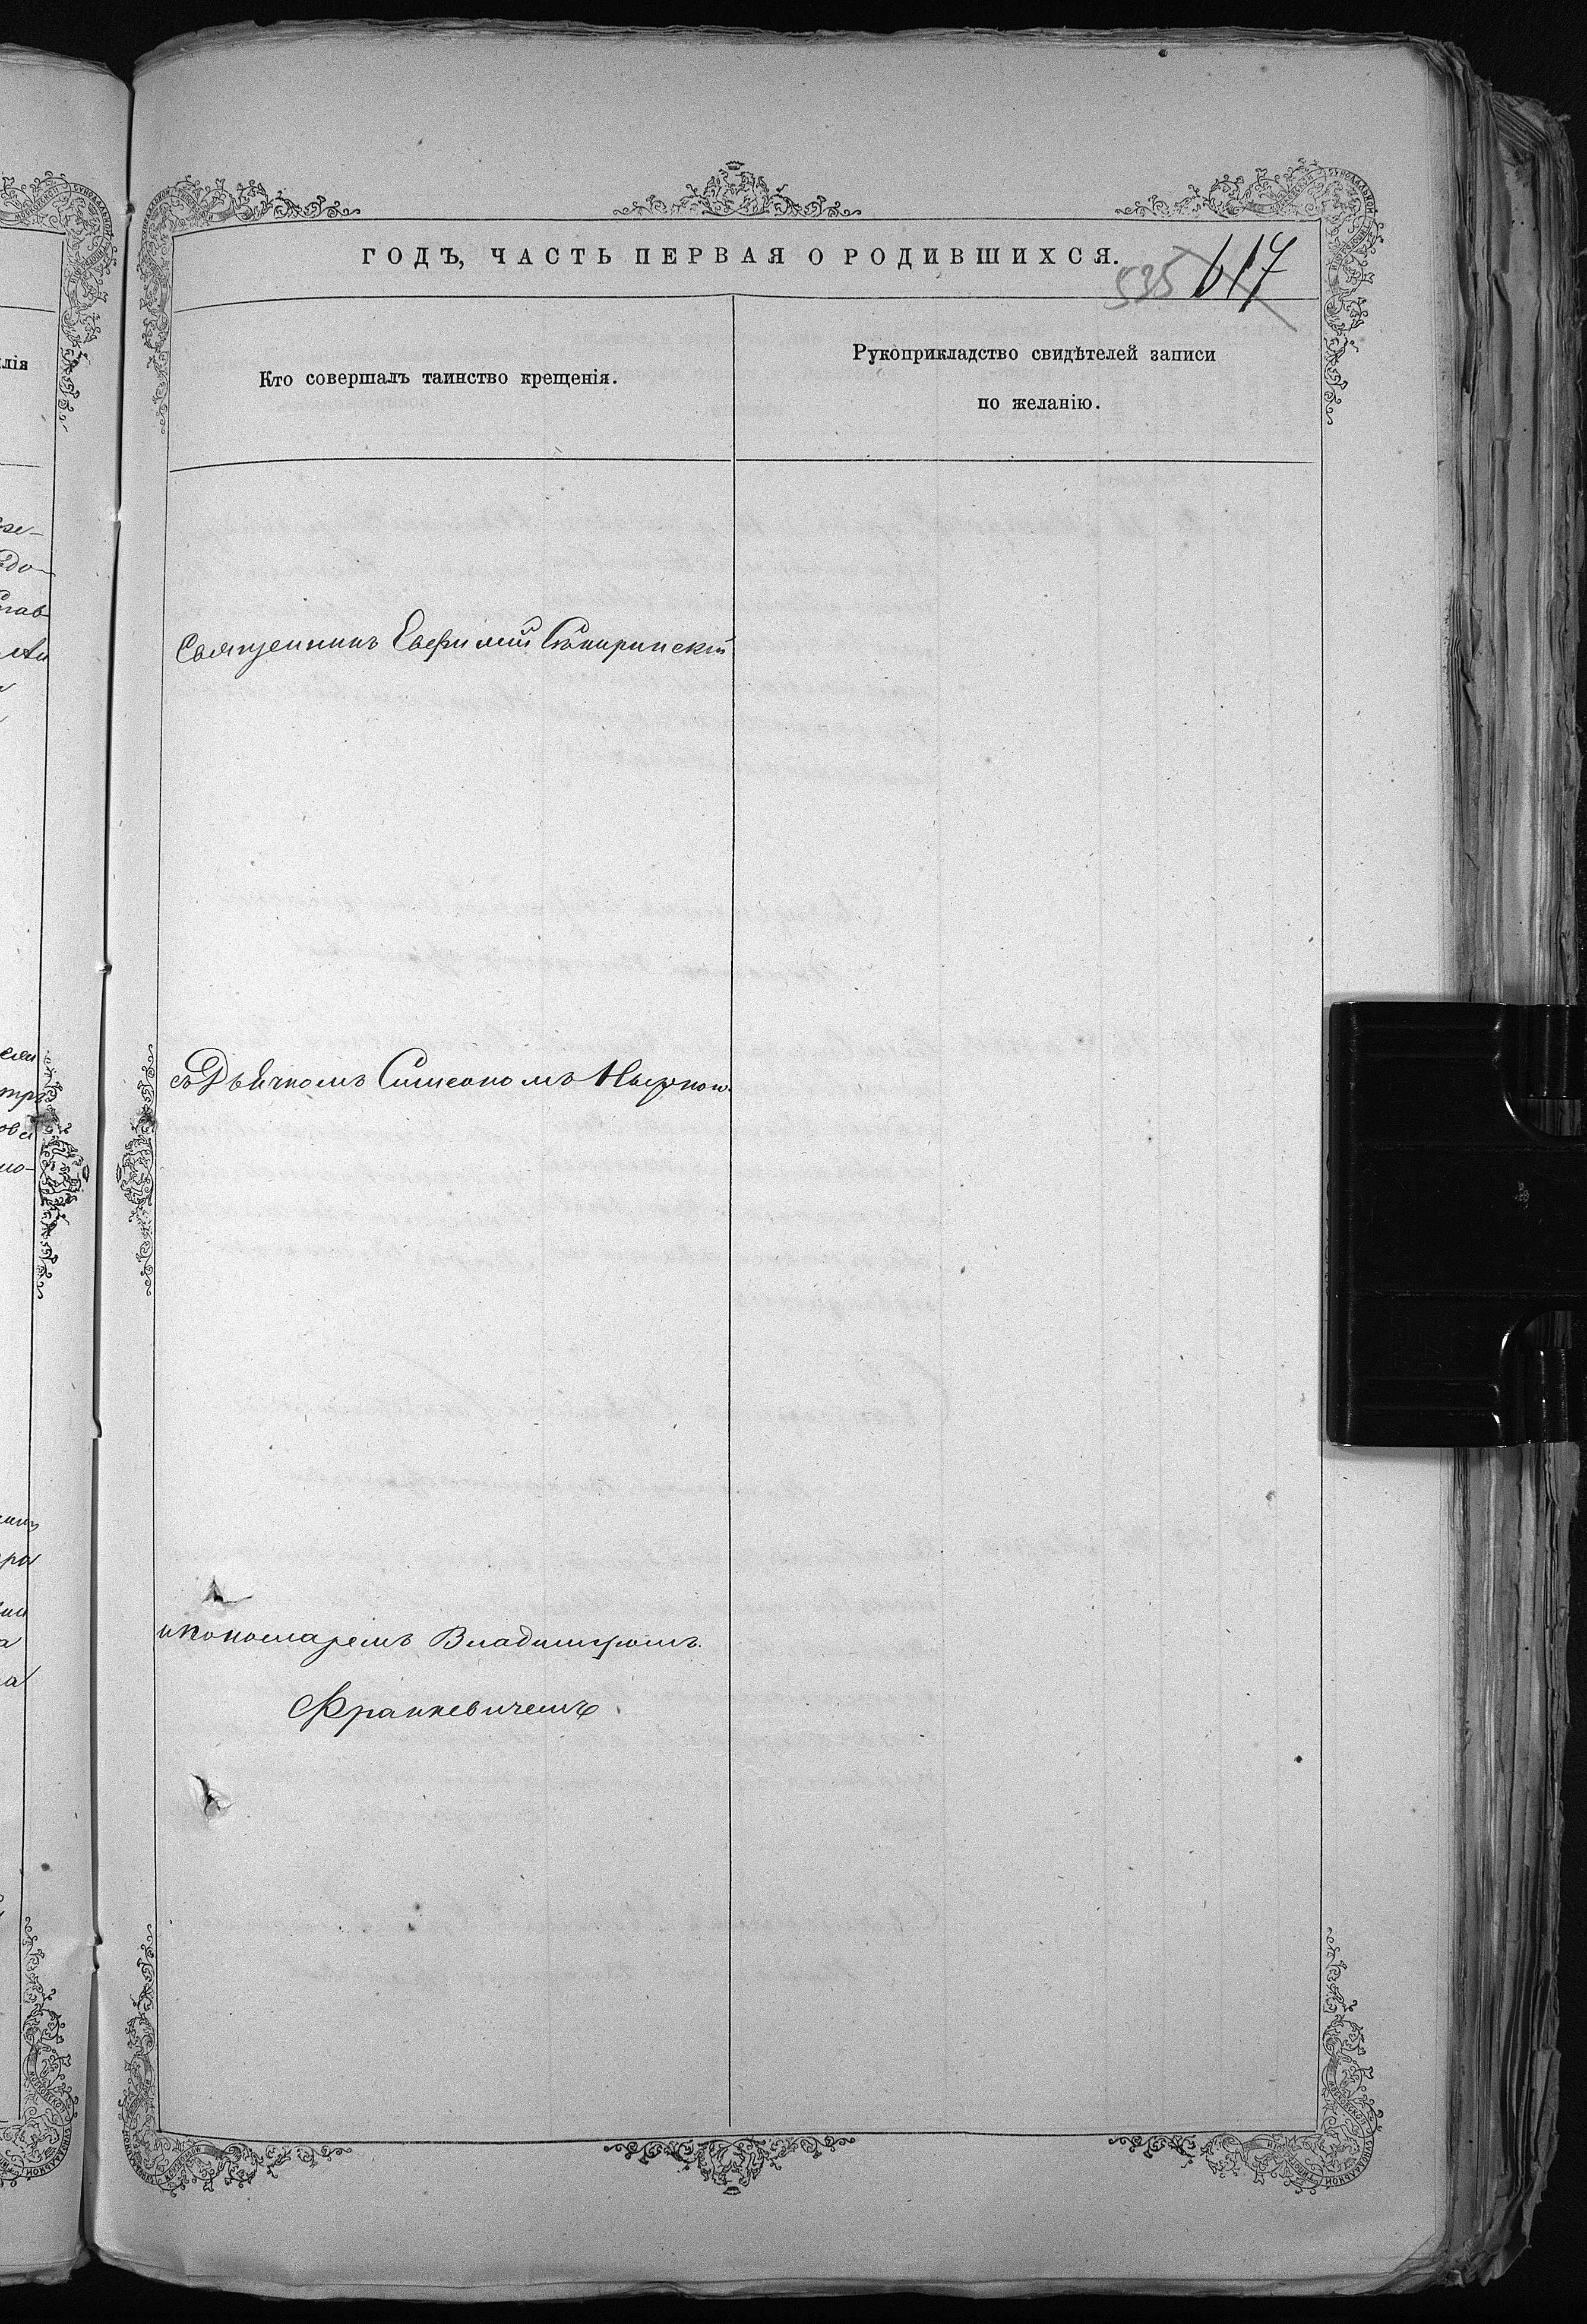 ГОДЪ, ЧАСТЬ ПЕРВАЯ О РОДИВШИХСЯ.
535 617
Кто совершалъ таинство крещенія.
Рукоприкладство свидѣтелей записи
по желанію.
лія
Священникъ Евфимій
съ Дьячкомъ Симеономъ
и Пономаремъ Владимиромъ
Франкевичемъ.